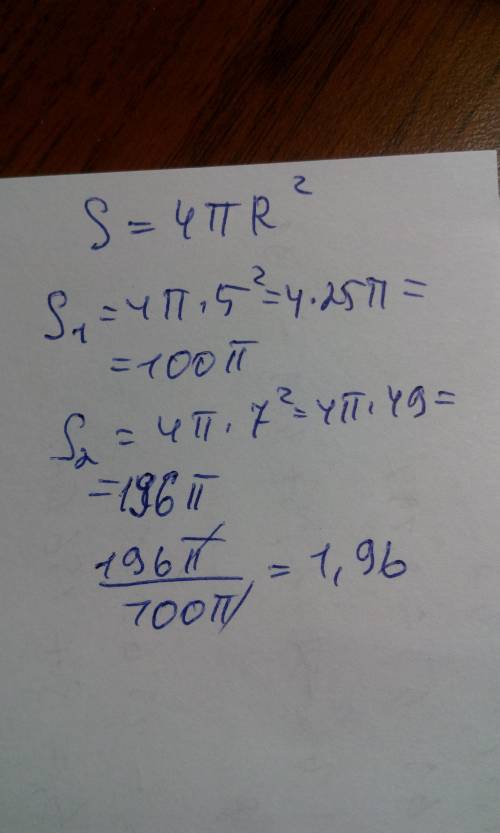 S = 4πR²
S₁ = 4π · 5² = 4 · 25π =
= 100π
S₂ = 4π · 7² = 4π · 49 =
= 196π
196π/100π = 1,96